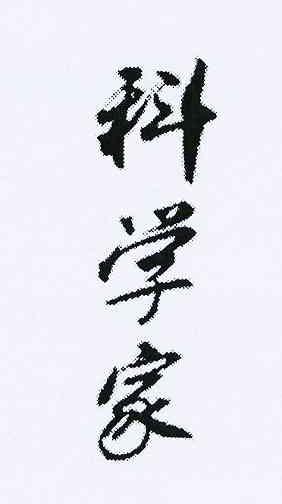 科学家